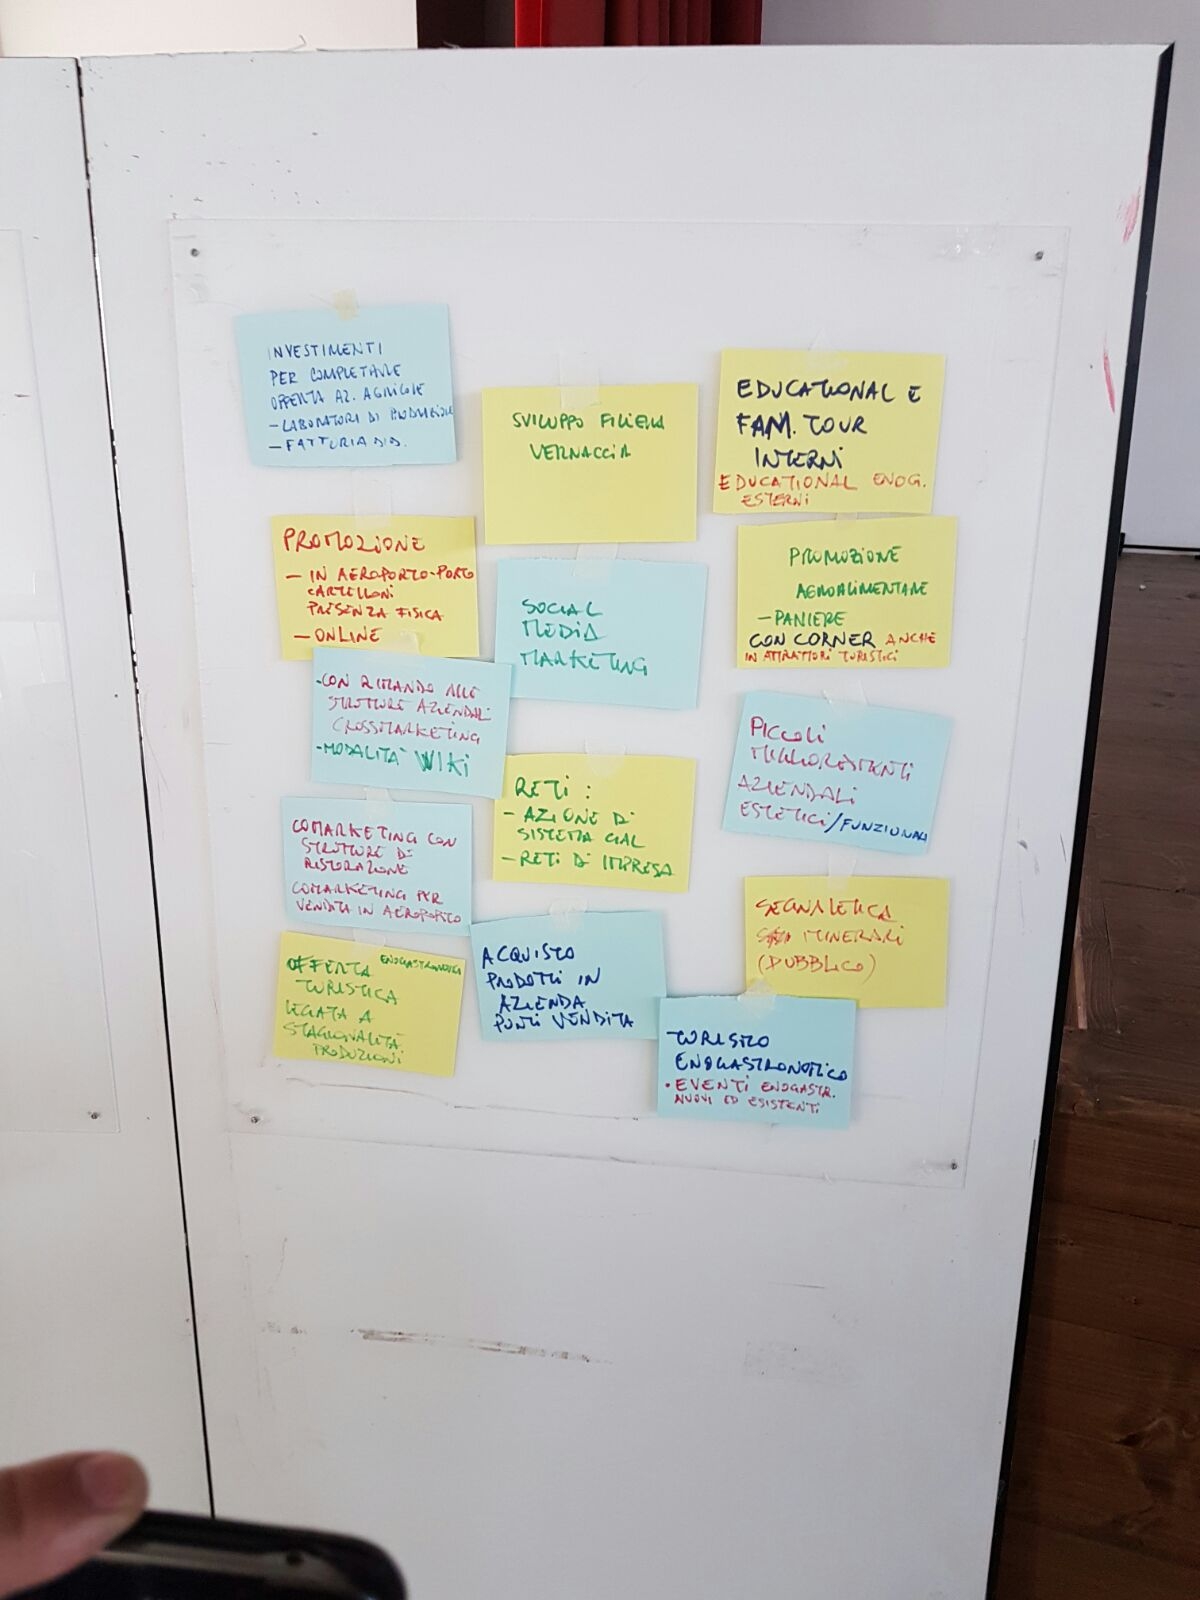 INVESTIMENTI
PER COMPLETARE
OFFERTA AZ. AGRICOLE
- LABORATORI DI PRODUZIONE
- FATTORIA DID.
PROMOZIONE
- IN AEROPORTO-PORTO
CARTELLONI
PRESENZA FISICA
- ONLINE
- CON RIMANDO ALLE
STRUTTURE AZIENDALI
CROSSMARKETING
- MODALITÀ WIKI
COMARKETING CON
STRUTTURE DI
RISTORAZIONE
COMARKETING PER
VENDITA IN AEROPORTO
OFFERTA ENOGASTRONOMICA
TURISTICA
LEGATA A
STAGIONALITÀ
PRODUZIONI
SVILUPPO FILIERA
VERNACCIA
SOCIAL
MEDIA
MARKETING
RETI:
- AZIONE DI
SISTEMA GAL
- RETI DI IMPRESA
ACQUISTO
PRODOTTI IN
AZIENDA
PUNTI VENDITA
EDUCATIONAL E
FAM. TOUR
INTERNI
EDUCATIONAL ENOG.
ESTERNI
PROMOZIONE
AGROALIMENTARE
- PANIERE
CON CORNER ANCHE
IN ATTRATTORI TURISTICI
PICCOLI
MIGLIORAMENTI
AZIENDALI
ESTETICI/FUNZIONALI
SEGNALETICA
ITINERARI
(PUBBLICO)
TURISMO
ENOGASTRONOMICO
• EVENTI ENOGASTR.
NUOVI ED ESISTENTI